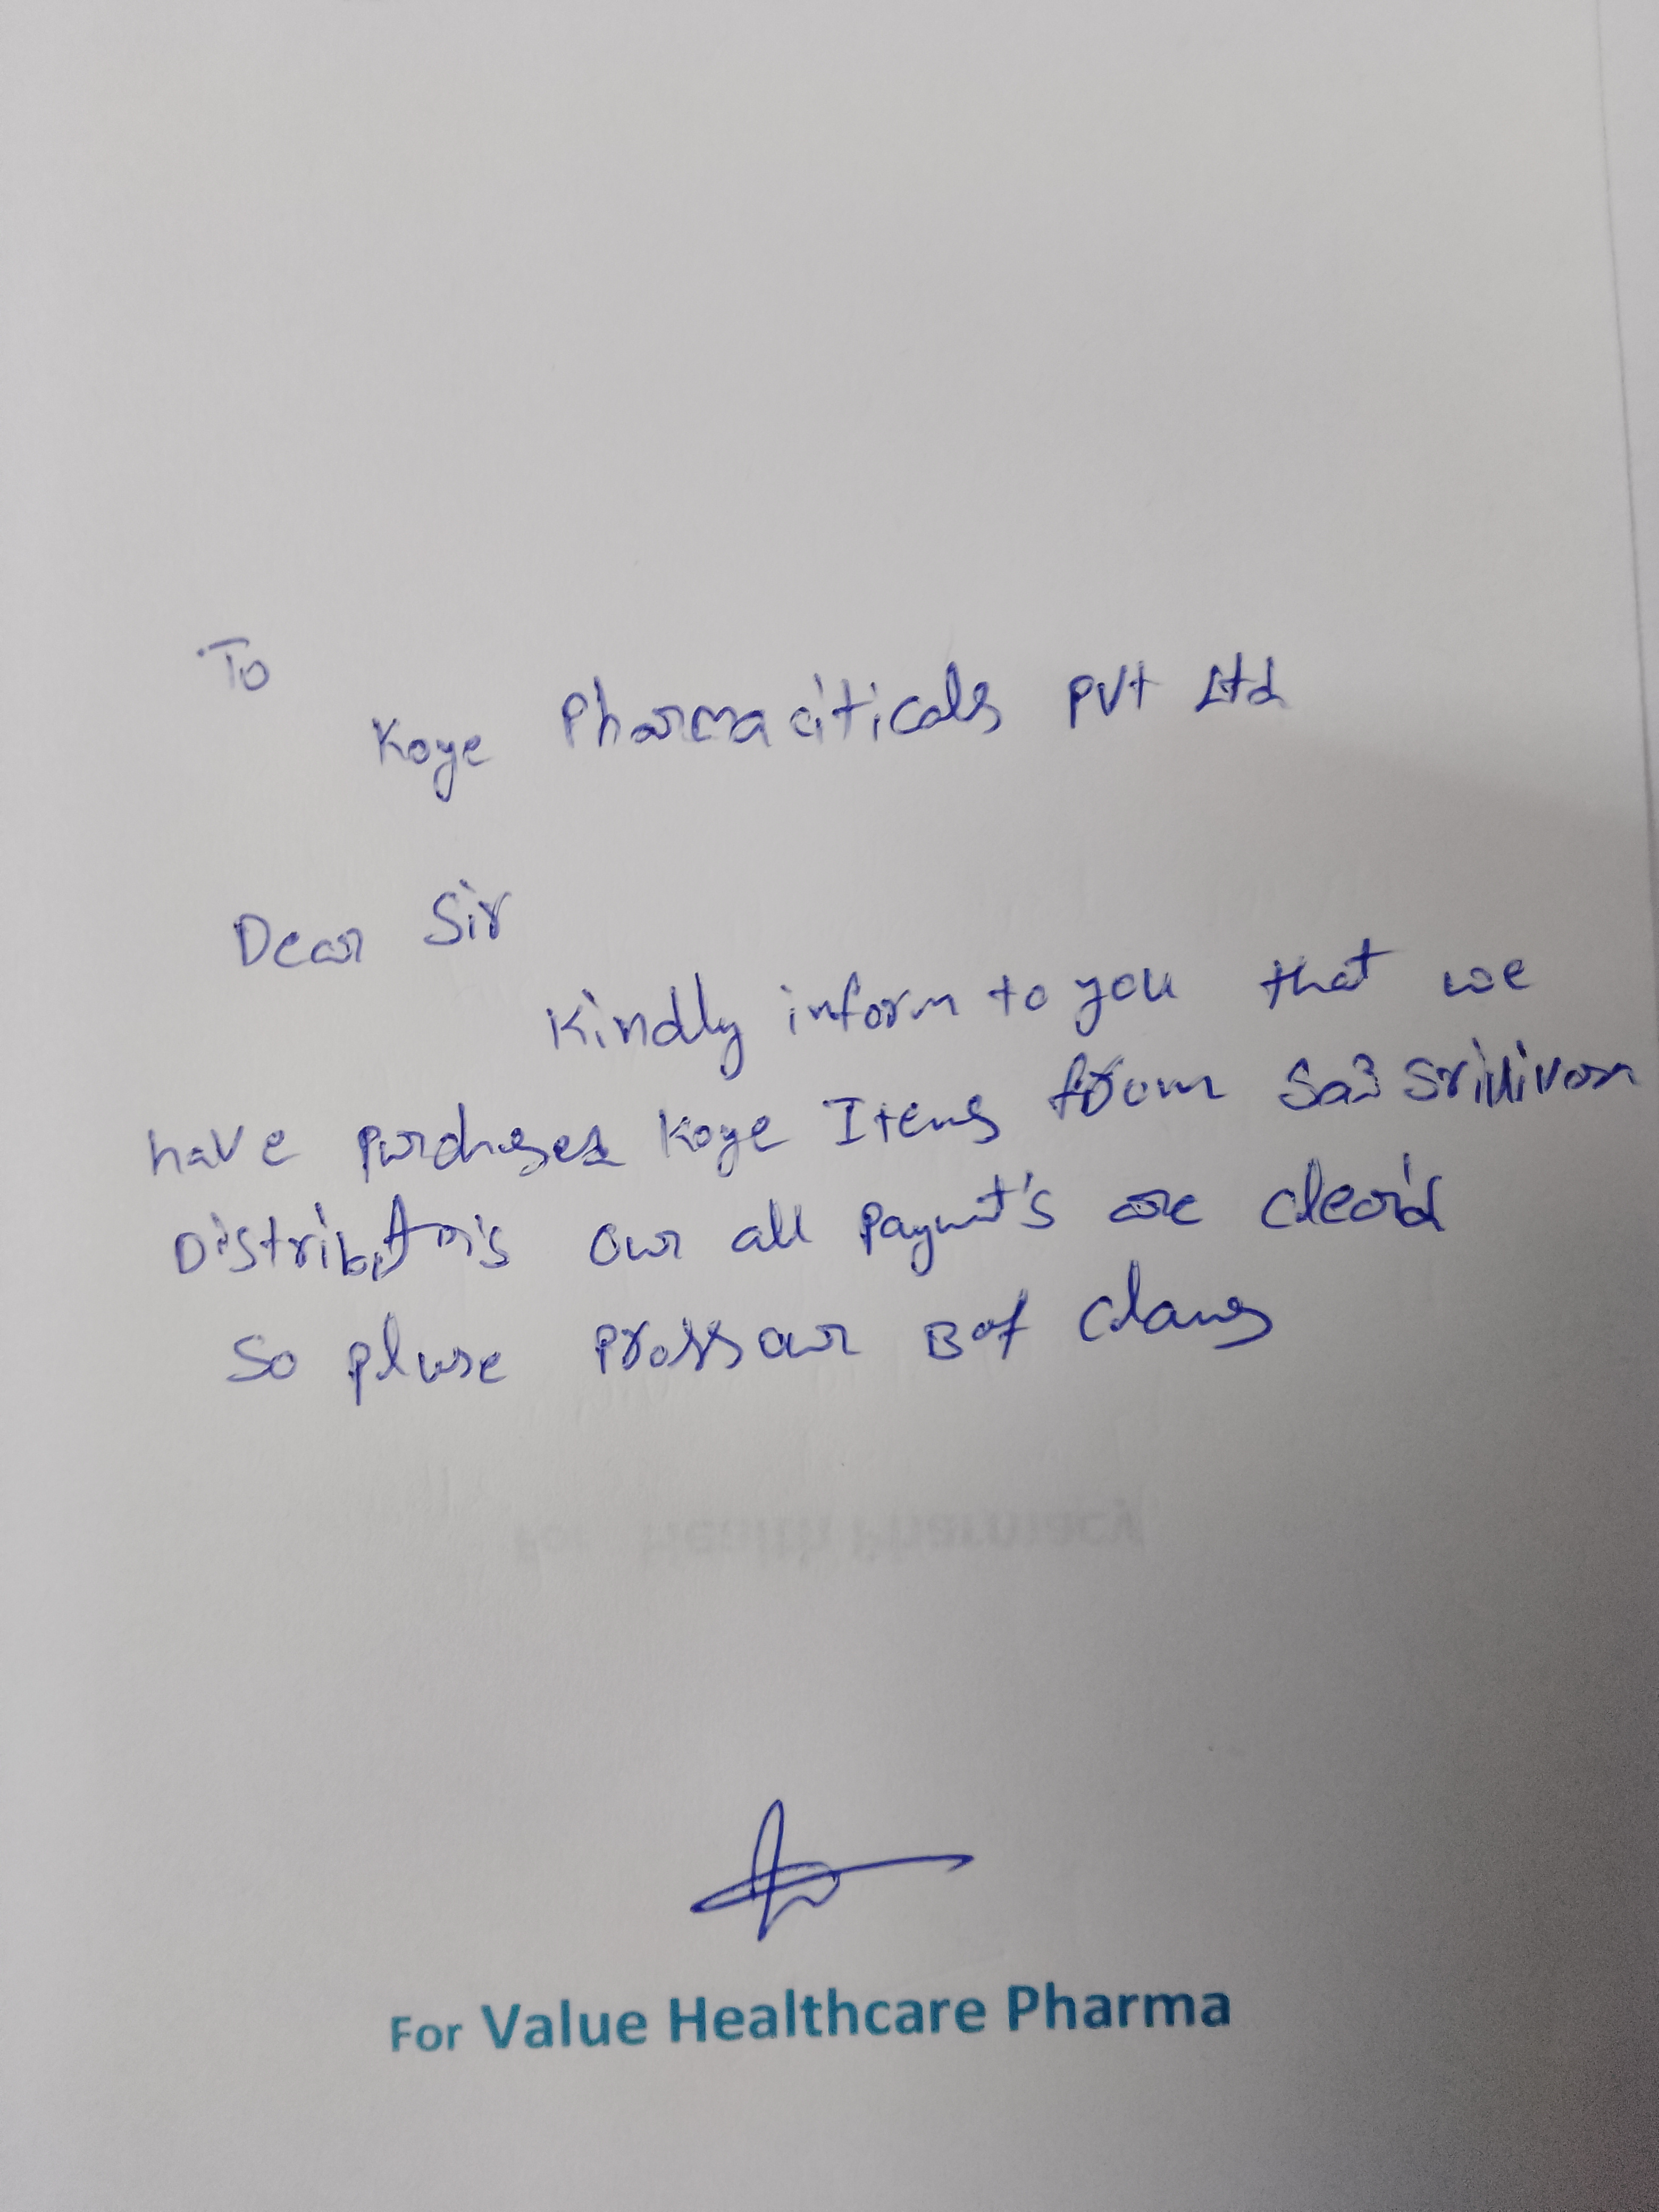 To
Koye Pharmaciticals Pvt Ltd
Dear Sir
Kindly inform to you that we
have purchases Koye Items from Sai
Distributor's our all Paymt's are clear'd
So please our
For Value Healthcare Pharma